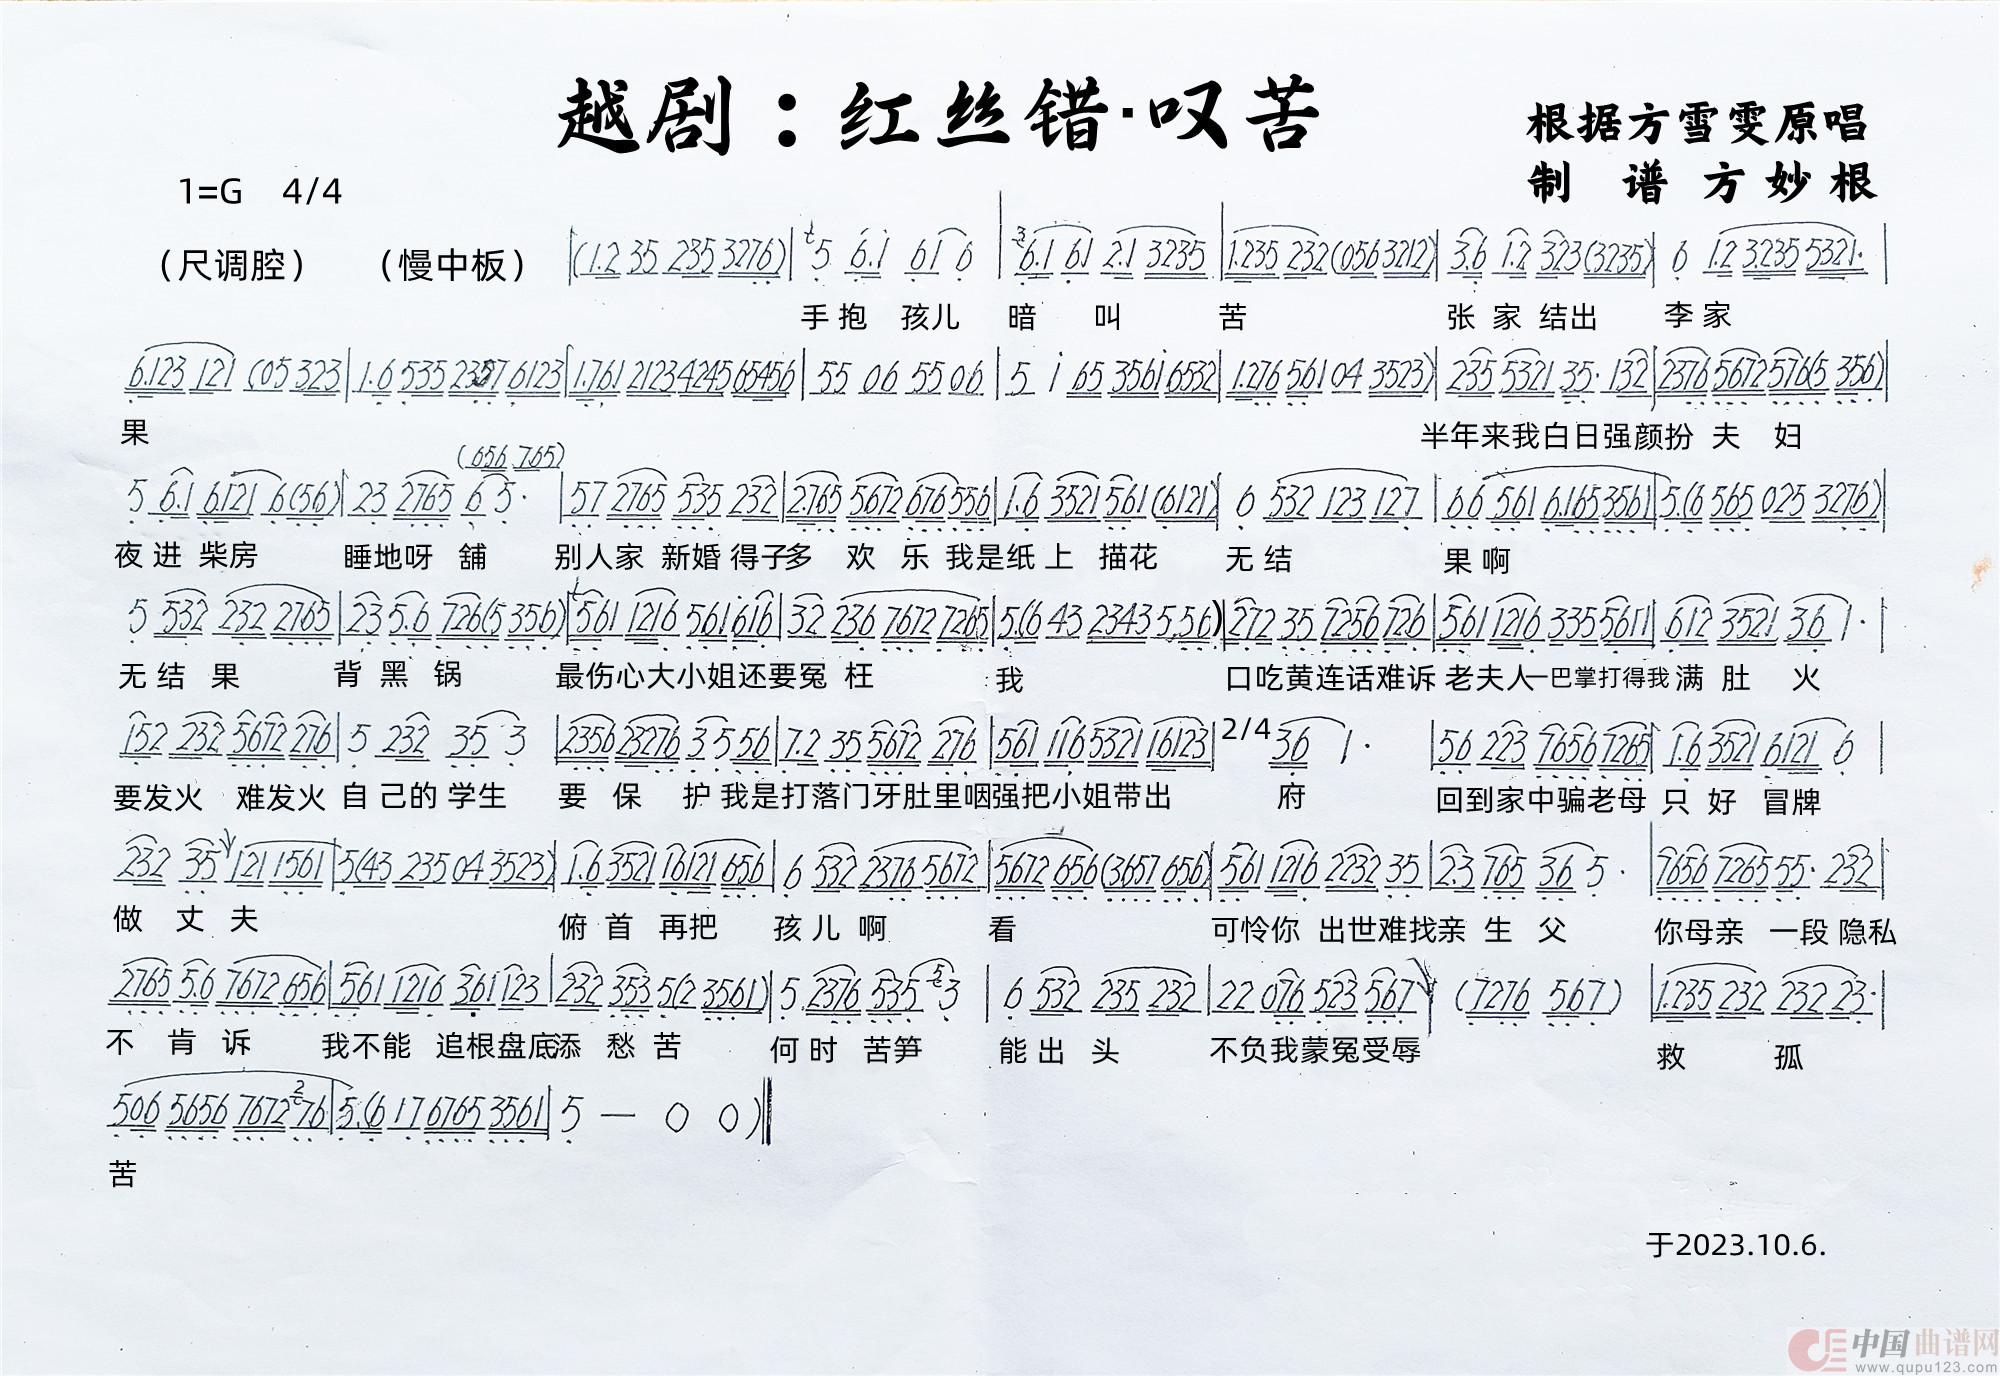 越剧：红丝错·叹苦
根据方雪雯原唱
制 谱 方妙根
1=G 4/4
（尺调腔） （慢中板） (1.2 35 235 3276) | 5 6.1 61 6 | 6.1 61 2.1 3235 | 1.235 232 (056 3212) | 3.6 1.2 323 (3235) | 6 1.2 3.235 5321. |
手抱 孩儿 暗 叫 苦 张 家 结出 李家
6.123 121 (05 323 | 1.6 535 6123 | 1.761 2123 4245 65456 | 55 06 55 06 | 5 i 65 356i 6532 | 1.276 561 04 3523) | 235 5321 35. 132 | 2376 5672 576 (5 356) |
果 半年来我白日强颜扮 夫 妇
(656 765)
5 6.1 6.121 6(56) | 23 2765 6 5. | 57 2765 535 232 | 2.765 5672 676 556 | 1.6 3521 561 (6121) | 6 532 123 127 | 66 561 6.165 3561 | 5.(6 565 025 3276) |
夜进 柴房 睡地呀 舖 别人家 新婚 得子多 欢 乐 我是纸上 描花 无结 果啊
5 532 232 2765 | 23 5.6 726 (5 356) | 561 1216 561 616 | 32 236 7672 7265 | 5.(6 43 2343 5.56) | 272 35 7256 726 | 561 1216 335 5611 | 612 3521 36 1. |
无结 果 背 黑 锅 最伤心大小姐还要冤 枉 我 口吃黄连话难诉 老夫人一巴掌打得我 满 肚 火
152 232 5672 276 | 5 232 35 3 | 2356 23276 35 56 | 7.2 35 5672 276 | 561 116 5321 16123 | 2/4 36 1. | 56 223 7656 7265 | 1.6 3521 6121 6 |
要发火 难发火 自 己的 学生 要 保 护 我是打落门牙肚里咽强把小姐带出 府 回到家中骗老母 只 好 冒牌
232 35 121 1561 | 5(43 235 04 3523) | 1.6 3521 16121 656 | 6 532 2376 5672 | 5672 656 (3657 656) | 561 1216 2232 35 | 2.3 765 36 5. | 7656 7265 55. 232 |
做 丈 夫 俯 首 再把 孩儿 啊 看 可怜你 出世难找亲 生 父 你母亲 一段 隐私
2765 5.6 7672 656 | 561 1216 361 123 | 232 353 5(2 3561) | 5. 2376 535 3 | 6 532 235 232 | 22 076 523 567 | (7276 567) | 1.235 232 232 23. |
不 肯 诉 我不能 追根盘底添 愁 苦 何时 苦笋 能出 头 不负我蒙冤受辱 救 孤
506 5656 7672 76 | 5.(6 17 6765 3561 | 5 — 0 0) ‖
苦
于2023.10.6.
中国曲谱网
www.qupu123.com